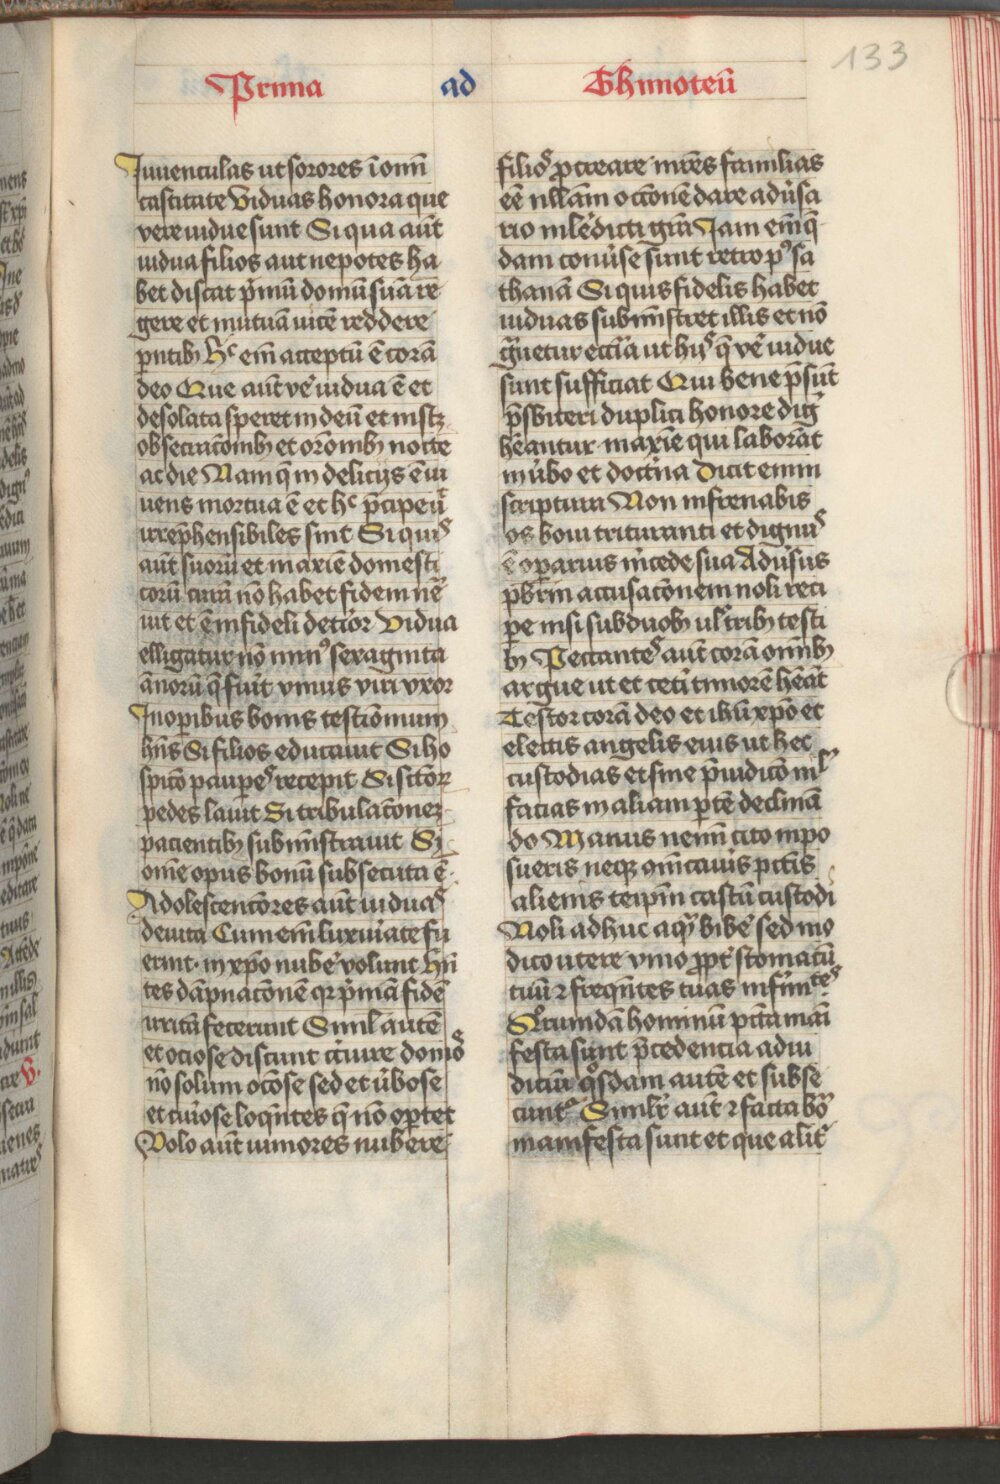 133
Prima ad Thimoteū
Iuuenculas ut sorores ī omī
castitate Viduas honora que
vere vidue sunt Si qua aūt
uidua filios aut nepotes ha
bet discat p̄mū domū suā re
gere et mutuā uicē reddere
pntibꝫ hͨ em̄ acceptū ē corā
deo Que aūt ve᷑ uidua ē et
desolata speret in deū et instꝫ
obsecracōnibꝫ et orōnibꝫ nocte
ac die Nam q̄ in delicijs ē ui
uens mortua ē et hͨ p̄cipe ut
irrep̄hensibiles sint Si quis
aūt suorū et maxīe domesti
corū curā nō habet fidem ne
uit et ē infideli det̓ior Vidua
elligatur nō min⁹ sexaginta
ānorū q̄ fu᷑it vnius viri vxor
In operibus bonis testīomium
hn̄s Si filios educauit Si ho
spicō paupes recepit Si sc̄tōrꝫ
pedes lauit Si tribulacōneꝫ
pacientibꝫ subm̄istrauit Si
om̄e opus bonū subsecuta ē
Adolescenc̄ores aūt viduas
deuita Cum em̄ luxuriate fu
erint in xp̄o nube᷑ volunt Hn̄
tes dāpnacōnē qꝛ p̄mā fidē
irritā fecerunt Simil autē
et ociose discunt circuire domos
nō solum ocōse sed et ūbose
et curiose loqn̄tes q̄ nō oꝑtet
Volo aūt iuniores nubere
filios ꝓcreare mr̄es familias
eē nllam occōnē dare adu᷑sa
rio ml̄edicti gr̄a Iam em̄ q̄
dam conu᷑se sunt retro p⁹ sa
thanā Si quis fidelis habet
uiduas subm̄istret illis et nō
g̊uetur eccīa ut hijs q̄ ve᷑ vidue
sunt sufficiat Qui bene p̄sūt
p̄sbiteri duplici honore dig̾
hēantur maxīe qui laborāt
in ūbo et doct̓na Dicit enim
scriptura Non infrenabis
os boui trituranti et dignus
ē oꝑarius m᷑cede sua Adu᷑sus
pb̄rm accusacōnem noli reci
ꝑe nisi sub duobꝫ ul̓ tribꝫ testi
bꝫ Peccantes aūt corā omībꝫ
argue ut et cet̓i timorē hēāt
Testor corā deo et ihū xp̄o et
electis angelis eius ut hec
custodias et sine p̄iudicō nil
facias in aliam ꝑtē declinā
do Manus nemī cito inpo
sueris neqꝫ cōm̄icauis pctīs
alienis teip̄m castū custodi
Noli adhuc aquā bibe᷑ sed mo
dico utere vino ꝓpt̓ stomacū
tuū ⁊ freqn̄tes tuas infirmitates
Quorumdā hominū pctā mani
festa sunt p̄cedencia ad iu
diciū qͦsdam autē et subse
cunt᷑ Similr̄ aūt ⁊ facta bōa
manifesta sunt et que alit᷑